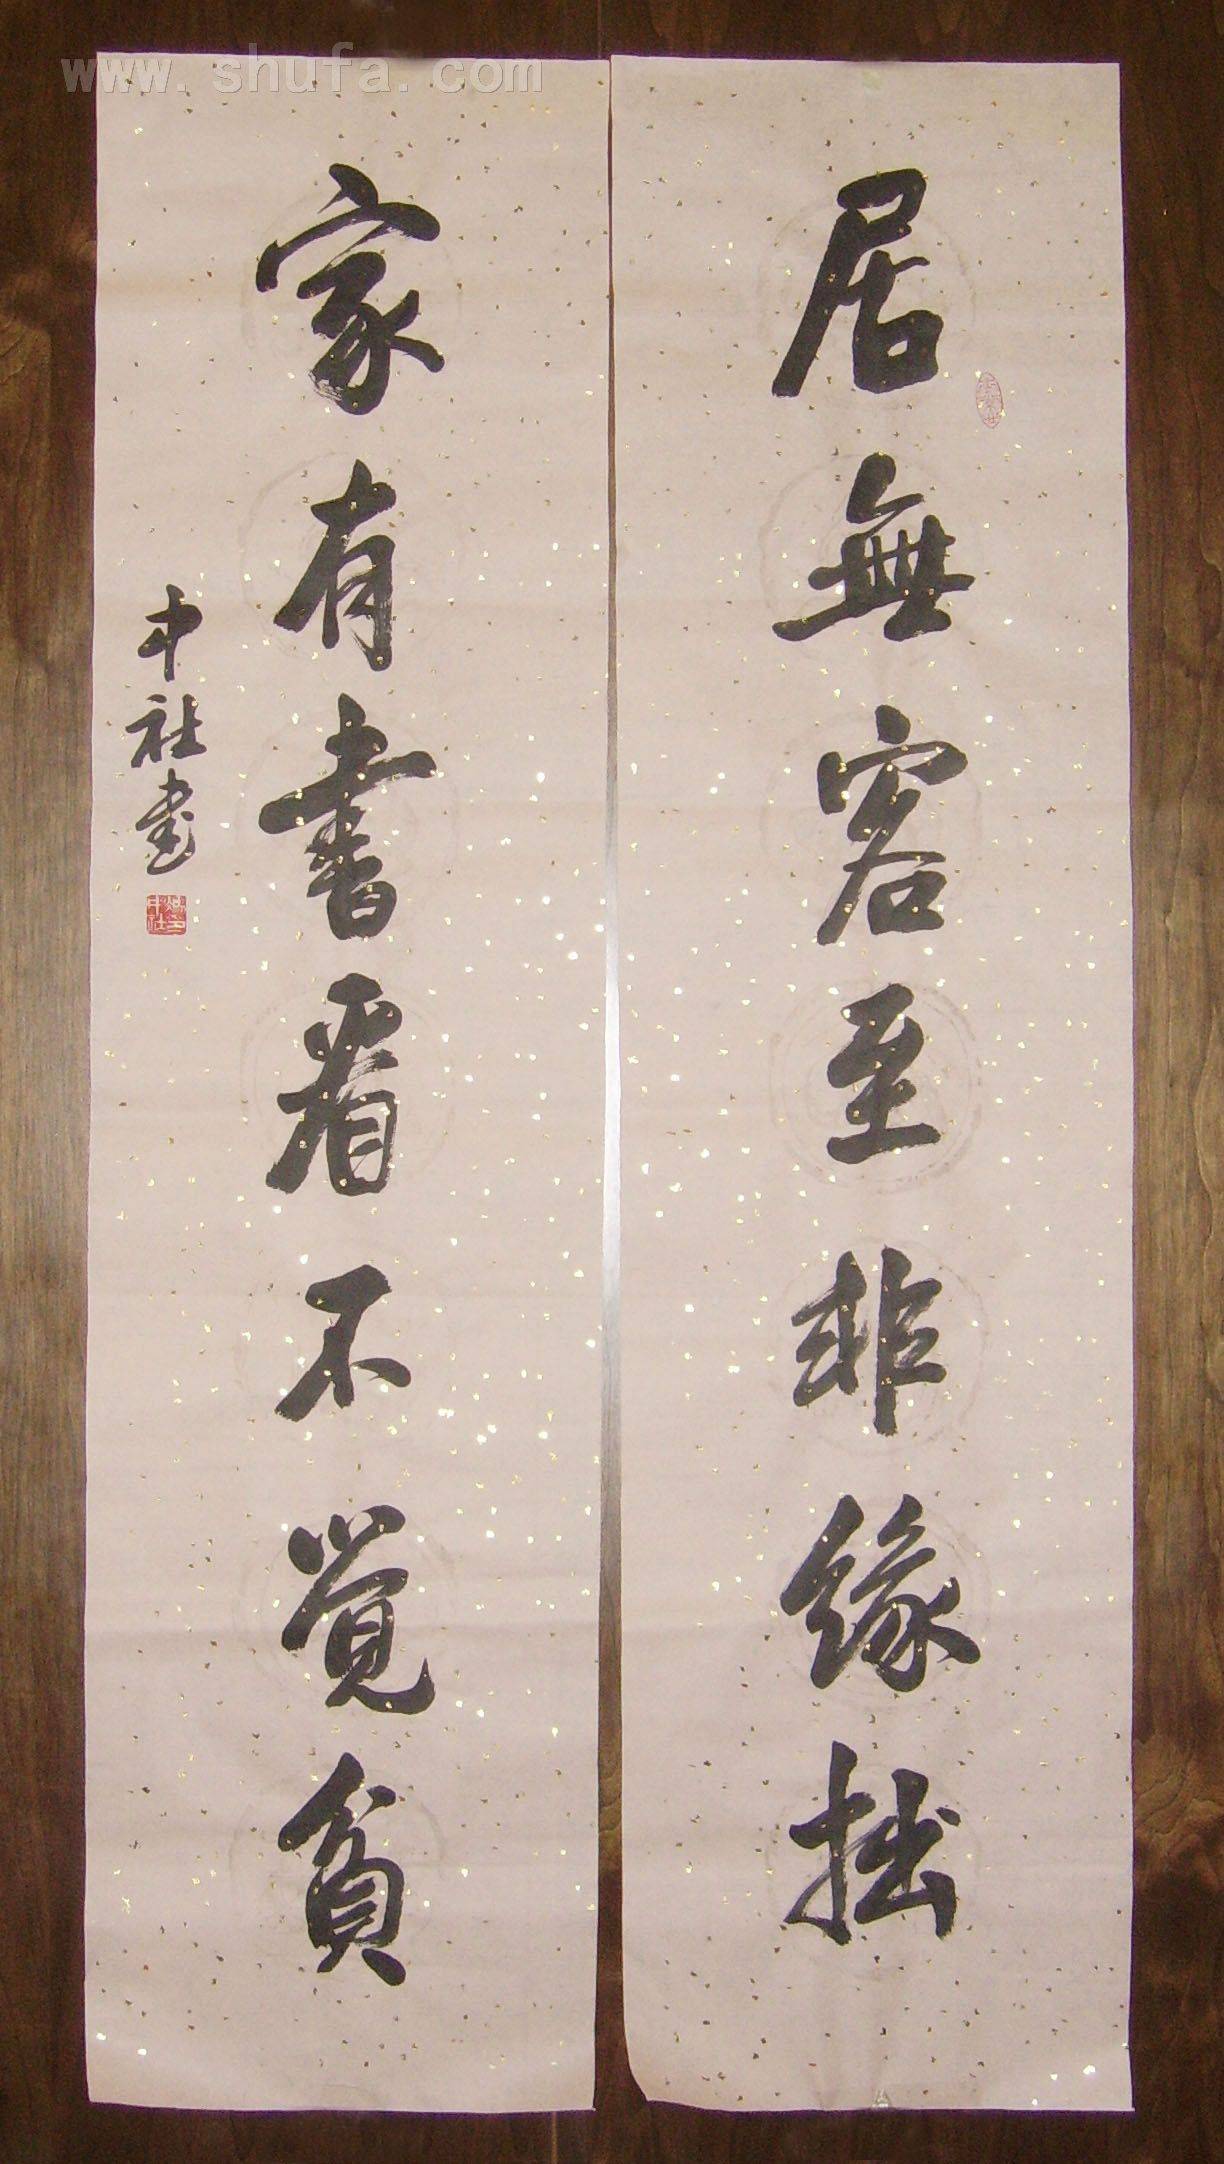 www.shufa.com
居無客至非緣拙
家有書看不覺貧
中社書